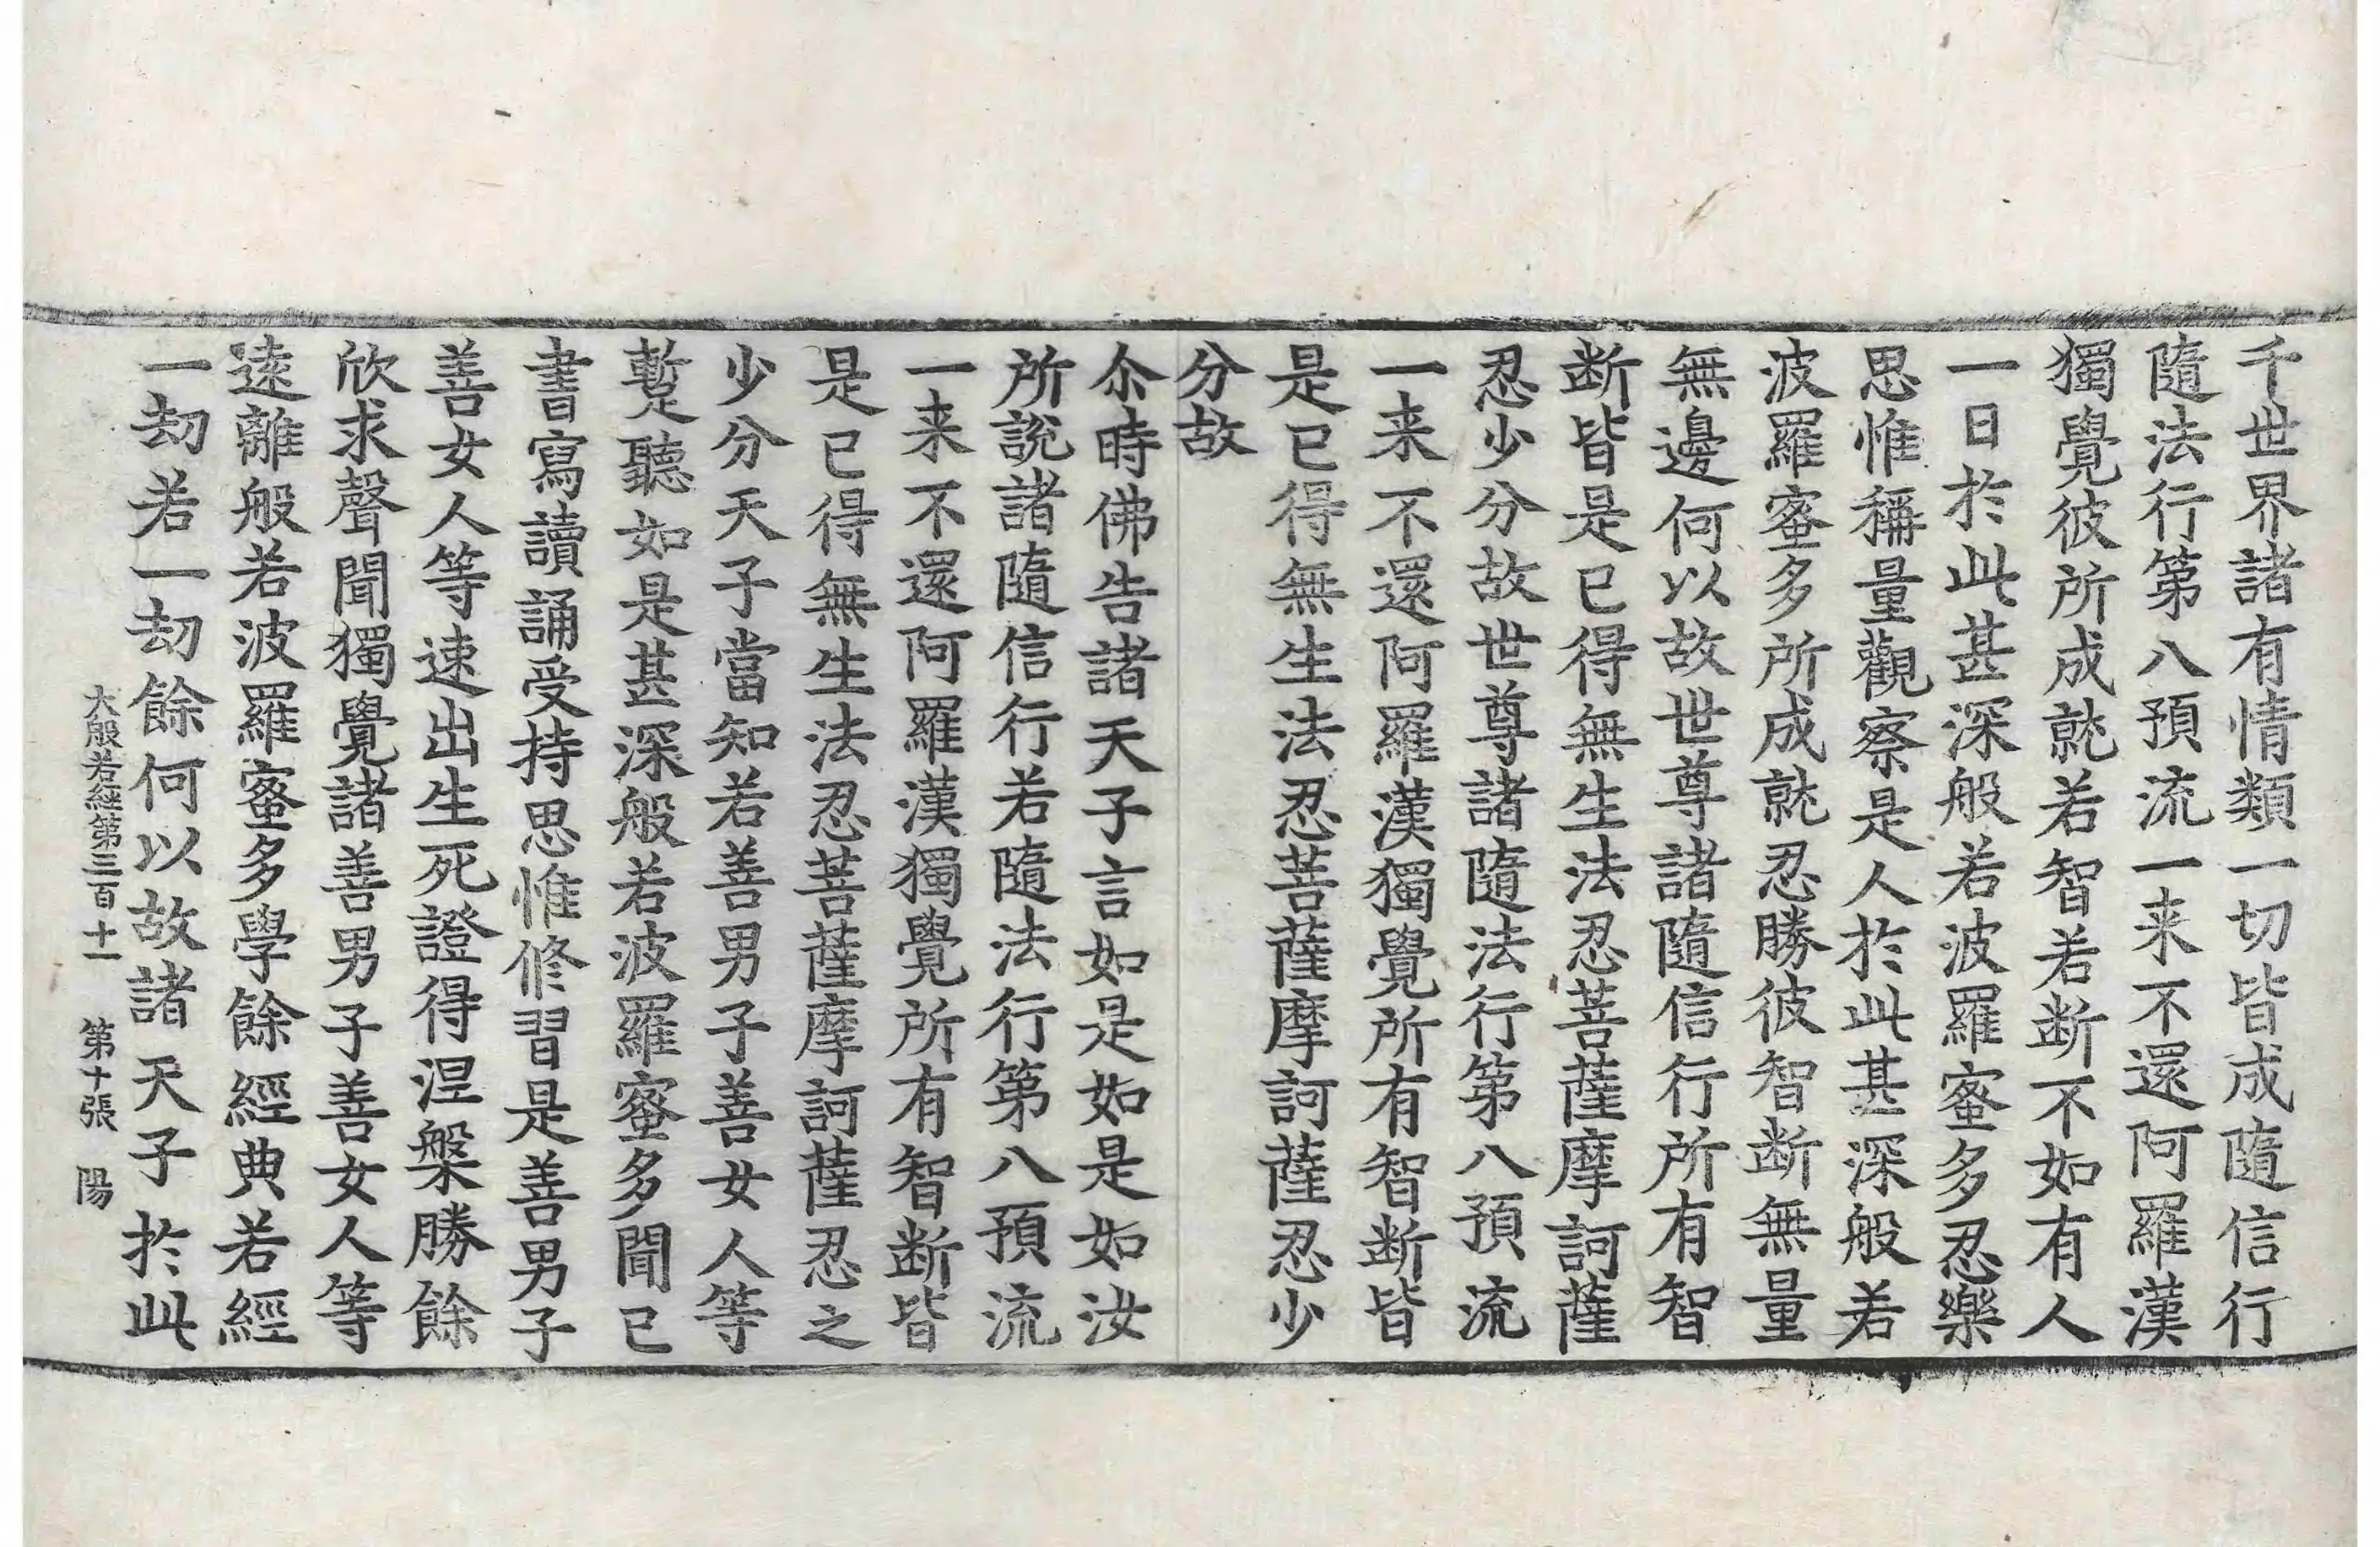 千世界諸有情類一切皆成隨信行
隨法行第八預流一来不還阿羅漢
獨覺彼所成就若智若断不如有人
一日於此甚深般若波羅蜜多忍樂
思惟稱量觀察是人於此甚深般若
波羅蜜多所成就忍勝彼智断無量
無邊何以故世尊諸隨信行所有智
断皆是已得無生法忍菩薩摩訶薩
忍少分故世尊諸隨法行第八預流
一来不還阿羅漢獨覺所有智断皆
是已得無生法忍菩薩摩訶薩忍少
分故
尒時佛告諸天子言如是如是如汝
所說諸隨信行若隨法行第八預流
一来不還阿羅漢獨覺所有智断皆
是已得無生法忍菩薩摩訶薩忍之
少分天子當知若善男子善女人等
暫聽如是甚深般若波羅蜜多聞已
書寫讀誦受持思惟修習是善男子
善女人等速出生死證得涅槃勝餘
欣求聲聞獨覺諸善男子善女人等
遠離般若波羅蜜多學餘經典若經
一劫若一劫餘何以故諸天子於此
大般若經第三百十一　第十張　陽